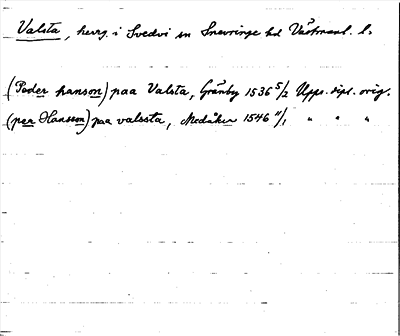 Valsta, herrg. i Svedvi sn Snevringe hd Västmanl. l.
(Peder hanson) paa Valsta, Gränby 1536 5/2 Upps. dipl. orig.
(per Hansson) paa valssta, Medåker 1546 11/1 " " "